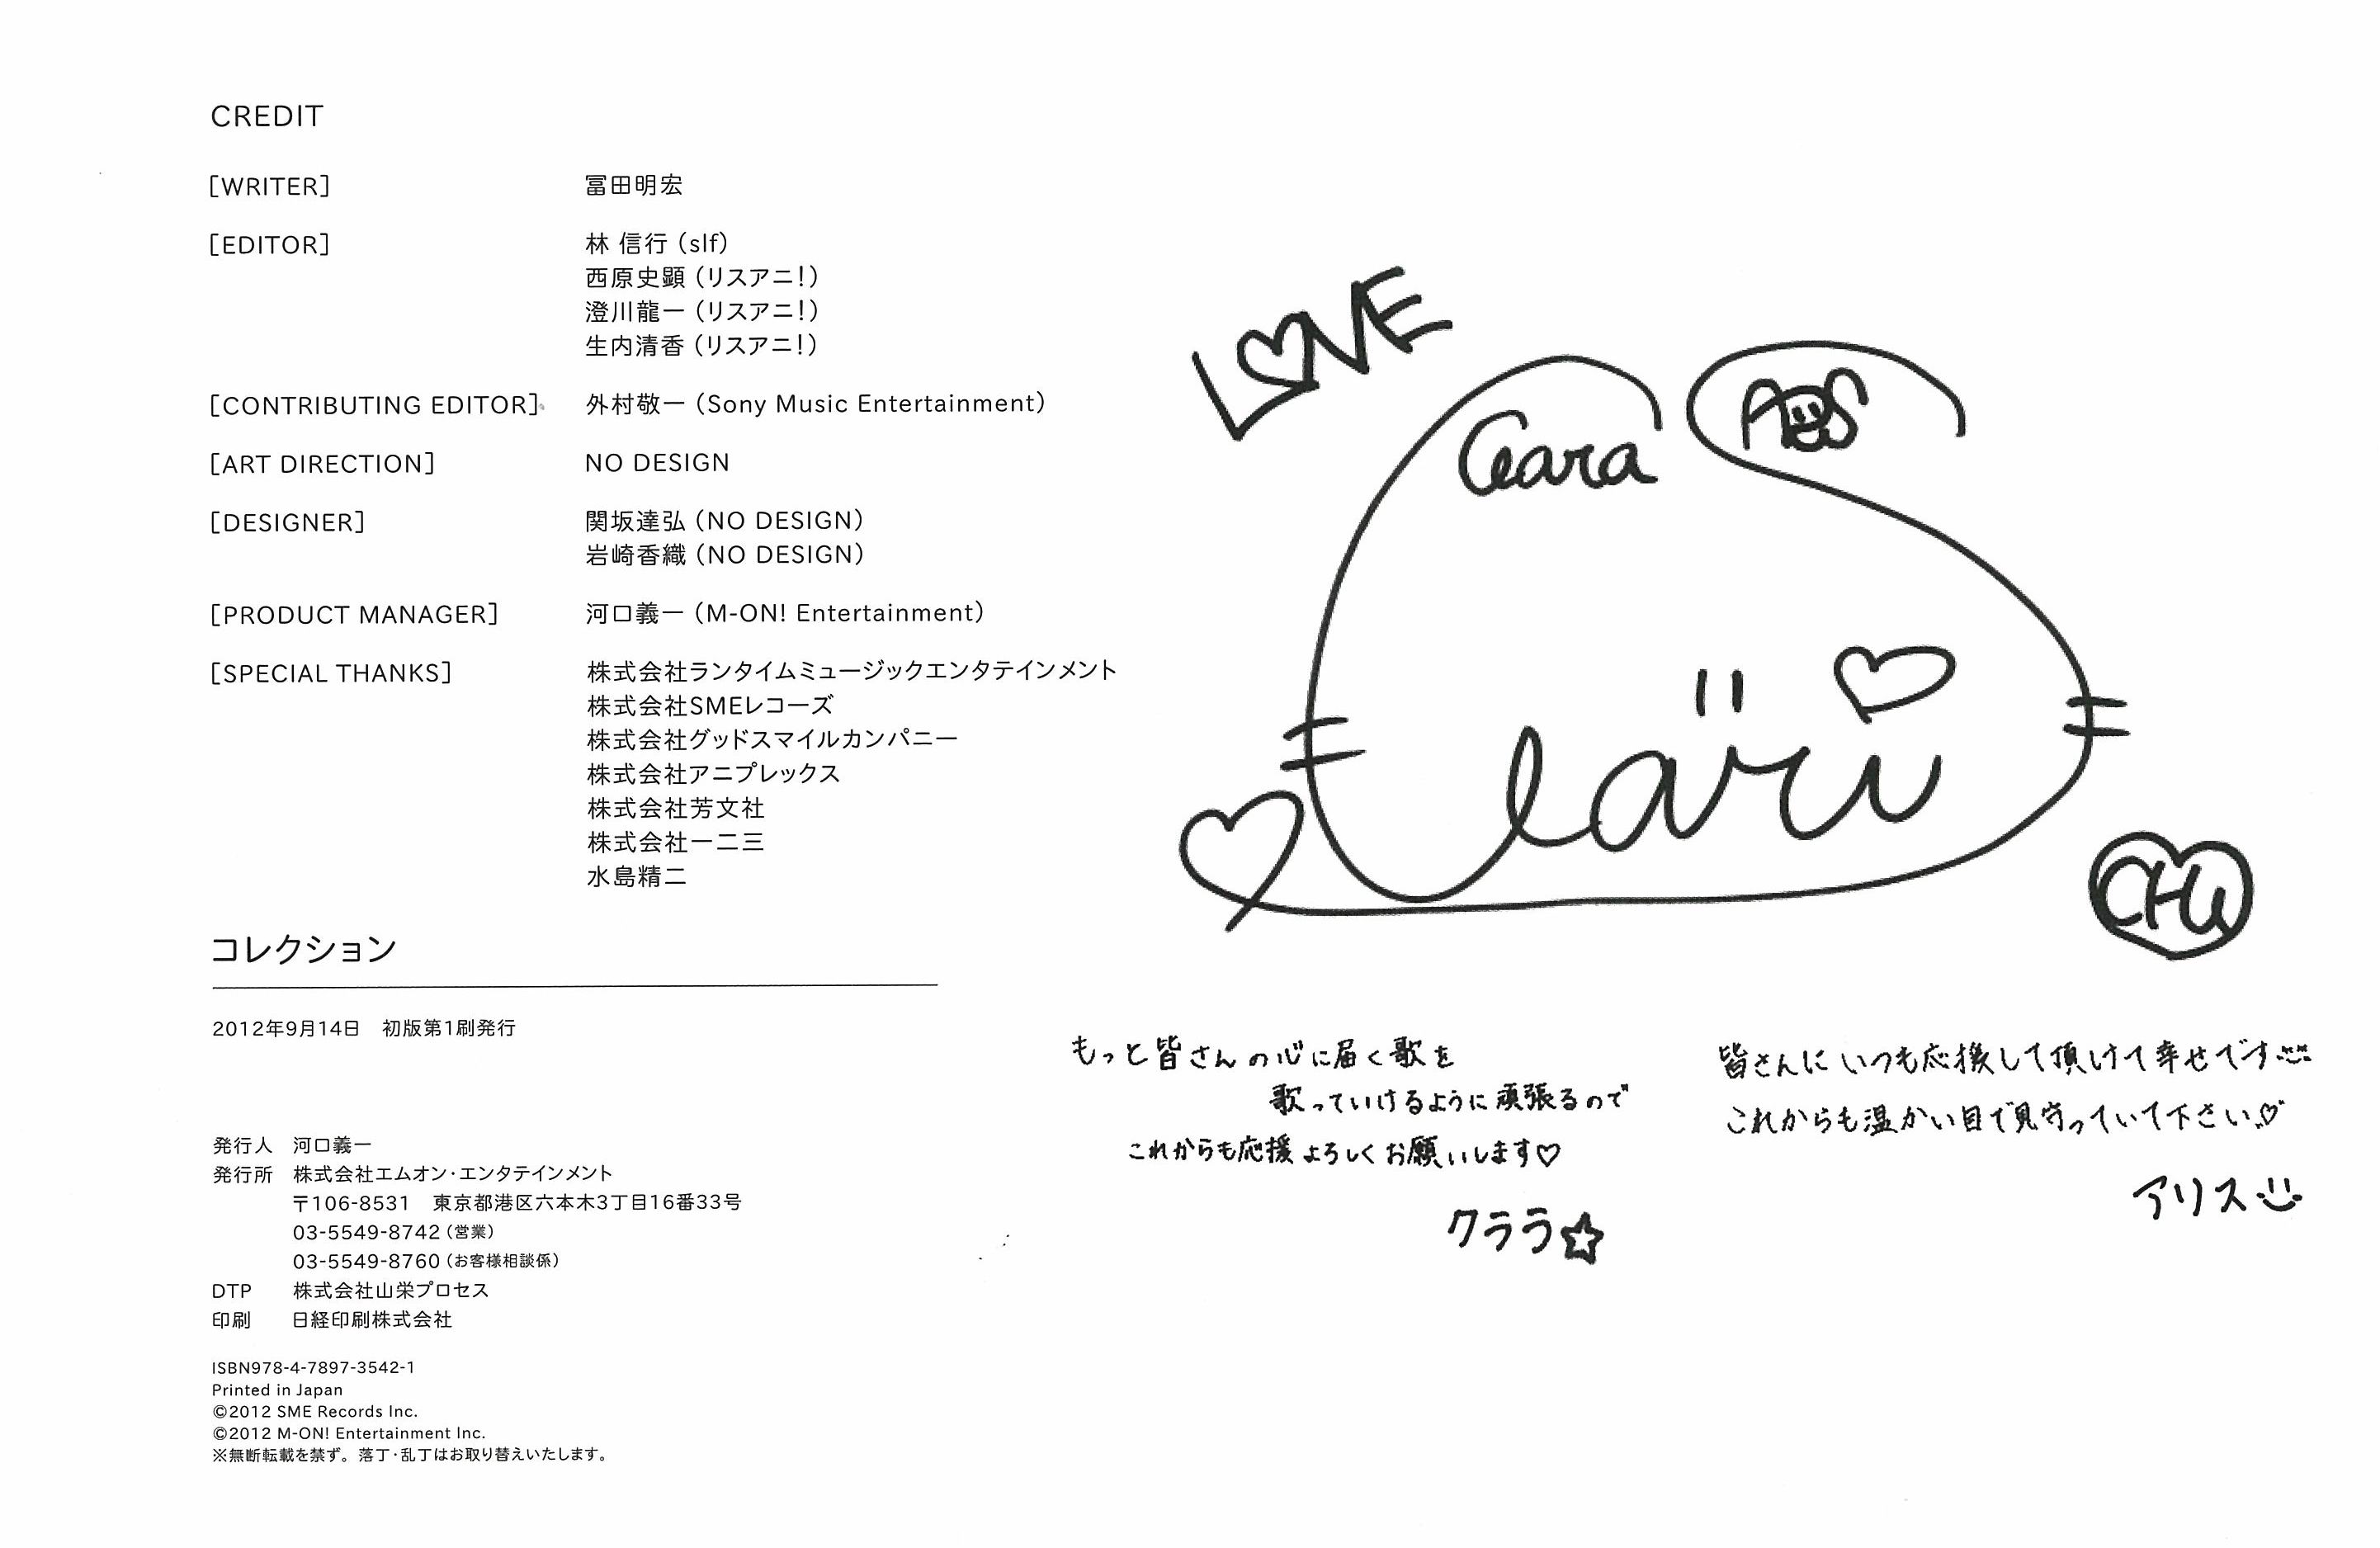 CREDIT
[WRITER] 冨田明宏
[EDITOR] 林 信行（slf）
西原史顕（リスアニ！）
澄川龍一（リスアニ！）
生内清香（リスアニ！）
[CONTRIBUTING EDITOR] 外村敬一（Sony Music Entertainment）
[ART DIRECTION] NO DESIGN
[DESIGNER] 関坂達弘（NO DESIGN）
岩崎香織（NO DESIGN）
[PRODUCT MANAGER] 河口義一（M-ON! Entertainment）
[SPECIAL THANKS] 株式会社ランタイムミュージックエンタテインメント
株式会社SMEレコーズ
株式会社グッドスマイルカンパニー
株式会社アニプレックス
株式会社芳文社
株式会社一二三
水島精二
コレクション
2012年9月14日　初版第1刷発行
発行人　河口義一
発行所　株式会社エムオン・エンタテインメント
〒106-8531　東京都港区六本木3丁目16番33号
03-5549-8742（営業）
03-5549-8760（お客様相談係）
DTP　株式会社山栄プロセス
印刷　日経印刷株式会社
ISBN978-4-7897-3542-1
Printed in Japan
©2012 SME Records Inc.
©2012 M-ON! Entertainment Inc.
※無断転載を禁ず。落丁・乱丁はお取り替えいたします。
LOVE
Clara
ClariS
CHU
もっと皆さんの心に届く歌を
歌っていけるように頑張るので
これからも応援よろしくお願いします♡
クララ☆
皆さんにいつも応援して頂けて幸せです
これからも温かい目で見守っていて下さい♡
アリス